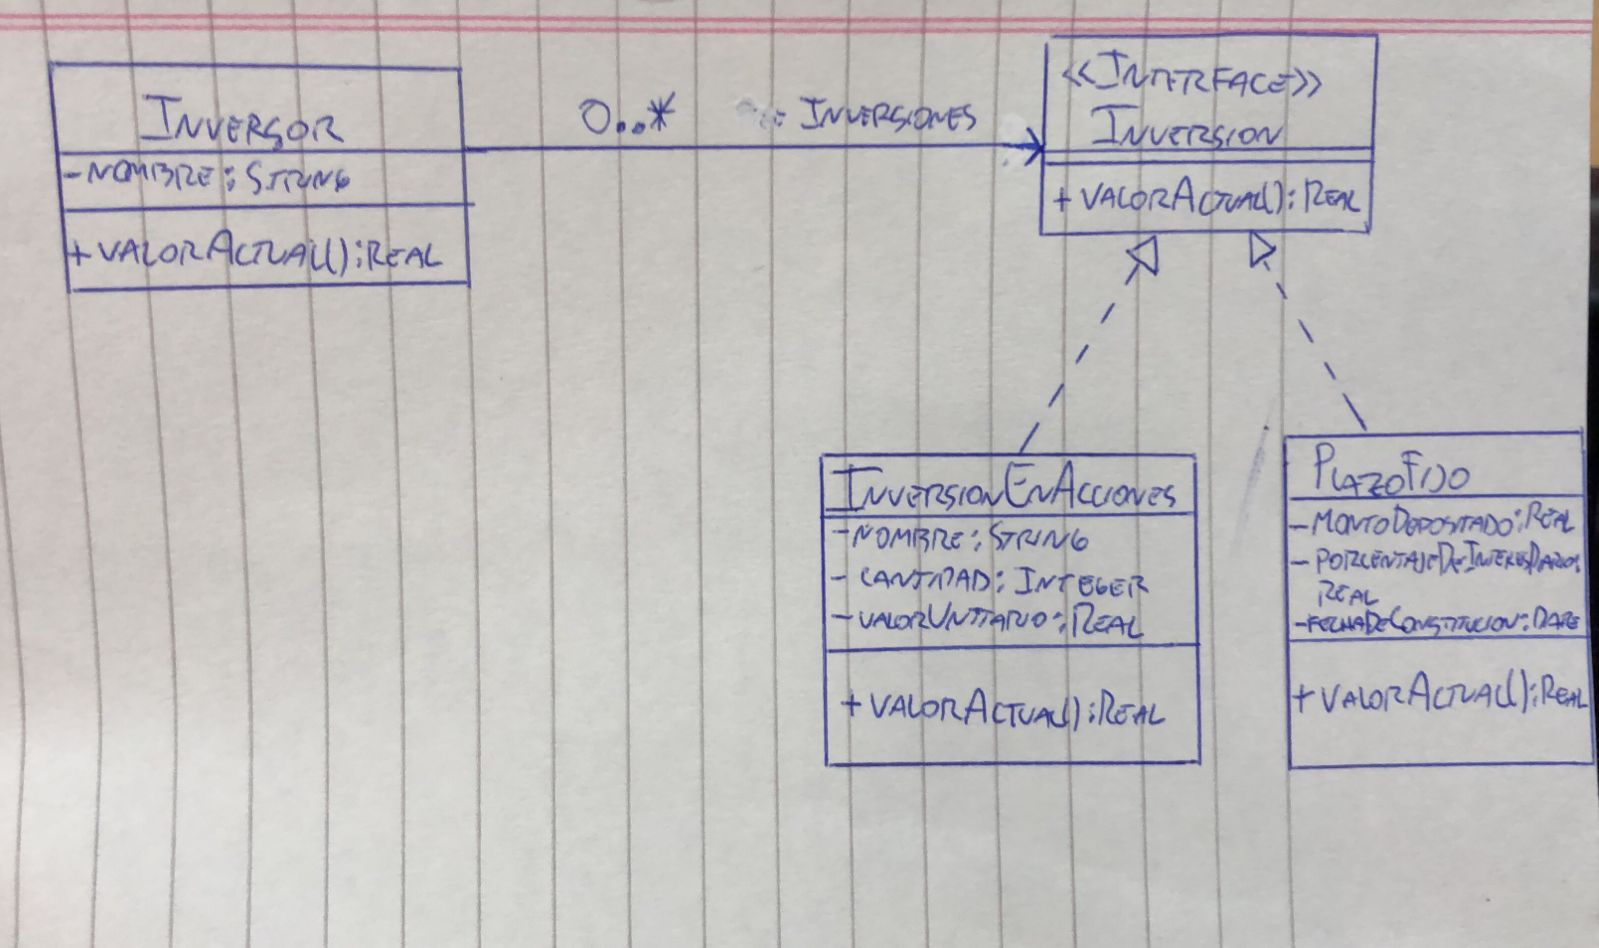 INVERSOR
-NOMBRE: STRING
+VALORACTUAL(): REAL
0..* INVERSIONES
<<INTERFACE>>
INVERSION
+VALORACTUAL(): REAL
INVERSIONENACCIONES
-NOMBRE: STRING
- CANTIDAD: INTEGER
-VALORUNITARIO: REAL
+VALORACTUAL(): REAL
PLAZOFIJO
-MONTODEPOSITADO: REAL
-PORCENTAJEDEINTERESDIARIO:
REAL
-FECHADECONSTITUCION: DATE
+VALORACTUAL(): REAL